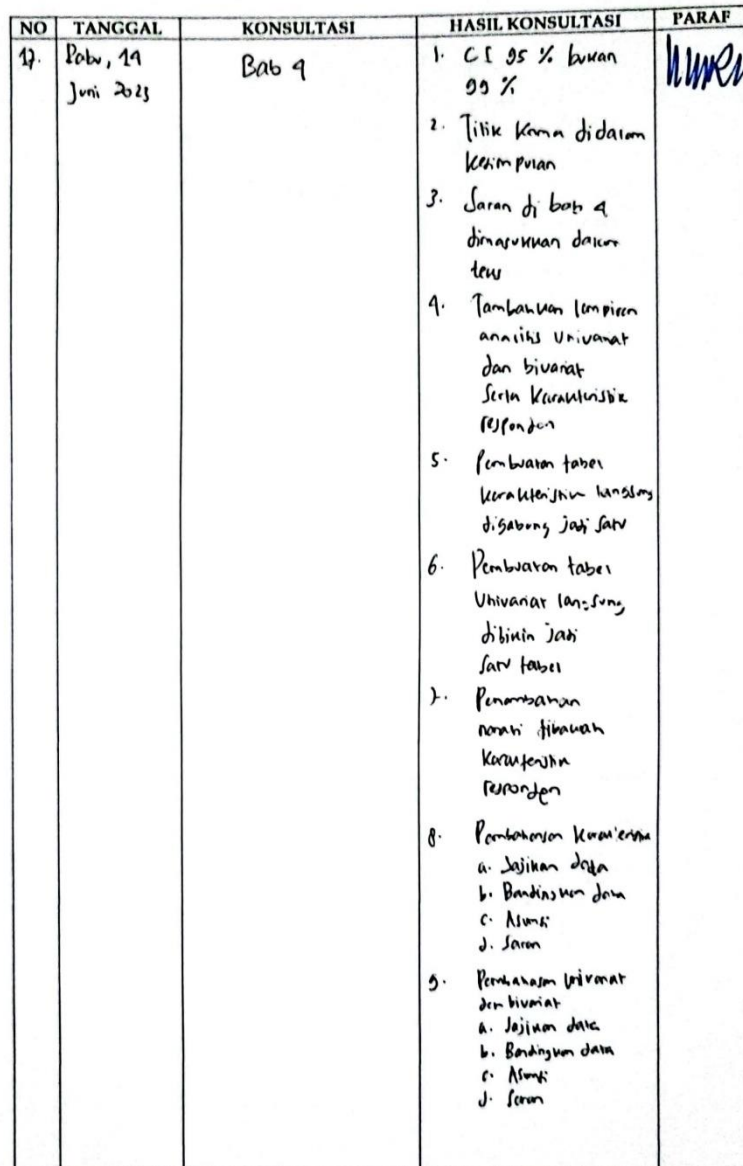 NO TANGGAL KONSULTASI HASIL KONSULTASI PARAF
17. Rabu, 14 Juni 2023
Bab 4
1. CI 95 % bukan
99 %
2. Titik Koma didalam
kesimpulan
3. Saran di bab 4
dimasukkan dalam
teks
4. Tambahkan lampiran
analisis Univariat
dan bivariat
Serta Karakteristik
responden
5. Pembuatan tabel
karakteristik langsung
digabung jadi satu
6. Pembuatan tabel
Univariat langsung
dibikin jadi
satu tabel
7. Penambahan
narasi dibawah
Karakteristik
responden
8. Pembahasan Karakteristik
a. Sajikan data
b. Bandingkan data
c. Asumsi
d. Saran
9. Pembahasan Univariat
dan bivariat
a. Sajikan data
b. Bandingkan data
c. Asumsi
d. Saran